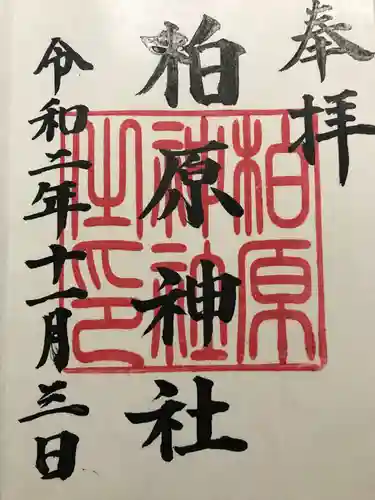 奉拝
柏原神社
令和二年十一月三日
柏原
神社
之印